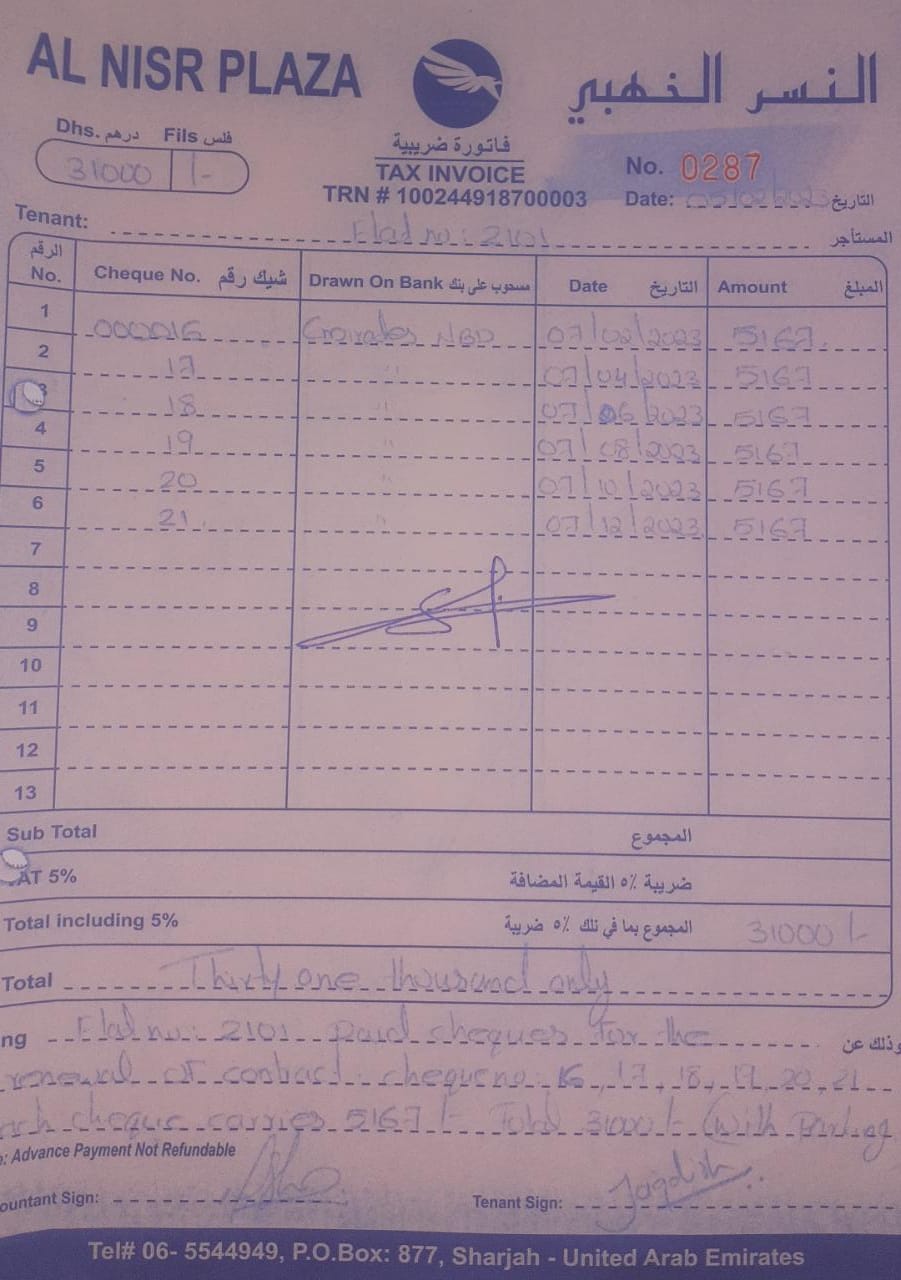 AL NISR PLAZA
النسر الذهبي
Dhs. درهم Fils فلس
31000 /-
فاتورة ضريبية
TAX INVOICE
TRN # 100244918700003
No. 0287
Date: 05/02/2023 التاريخ
Tenant: Flat no: 2101 المستأجر
الرقم No. Cheque No. شيك رقم Drawn On Bank مسحوب على بنك Date التاريخ Amount المبلغ
1 000016 Emirates NBD 07/02/2023 5167
2 17 " 07/04/2023 5167
3 18 " 07/06/2023 5167
4 19 " 07/08/2023 5167
5 20 " 07/10/2023 5167
6 21 " 07/12/2023 5167
7
8
9
10
11
12
13
Sub Total المجموع
VAT 5% ضريبة ٥٪ القيمة المضافة
Total including 5% المجموع بما في تلك ٥٪ ضريبة 31000/-
Total Thirty one thousand only
ng Flat no: 2101 paid cheques for the وذلك عن
renewal of contract. cheque no: 16, 17, 18, 19, 20, 21
ach cheque carries 5167/- Total 31000/- (with Parking
: Advance Payment Not Refundable
ountant Sign: Tenant Sign: Jagdish
Tel# 06- 5544949, P.O.Box: 877, Sharjah - United Arab Emirates